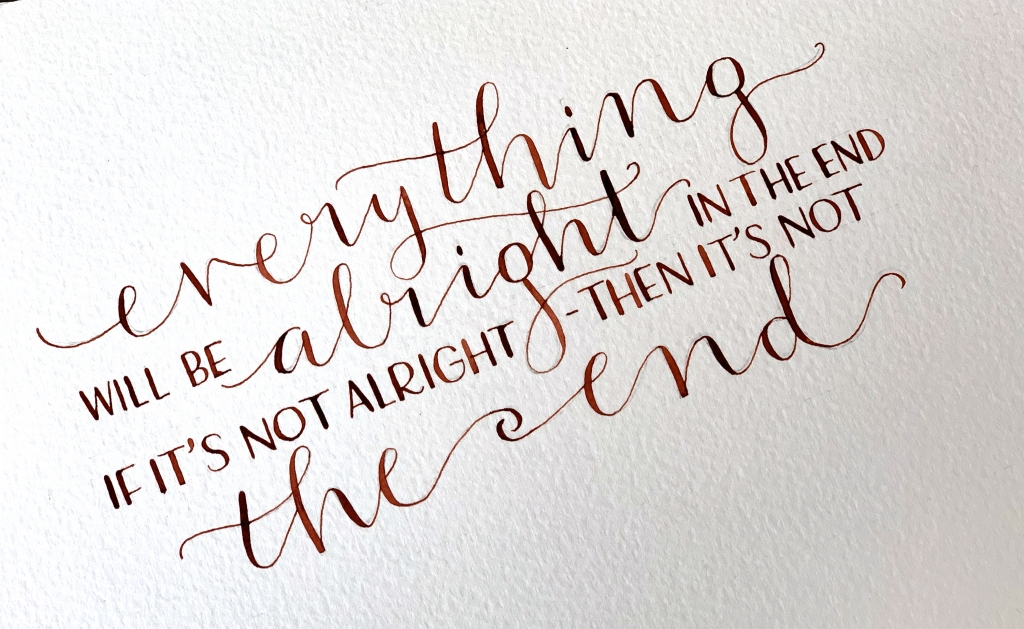 everything
WILL BE alright IN THE END
IF IT'S NOT ALRIGHT - THEN IT'S NOT
the end